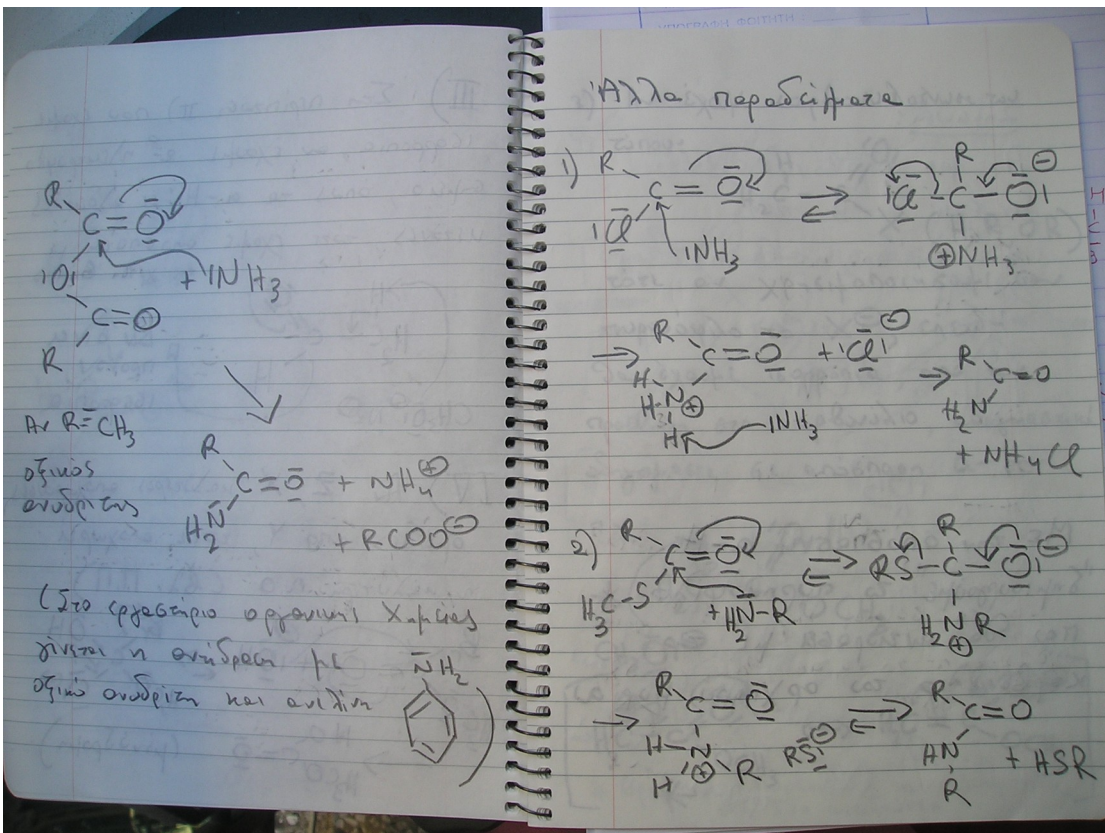 R
C=O
IOI + INH3
C=O
R
Αν R=CH3
οξικός
ανυδρίτης
R
C=O + NH4⊕
H2N
+ RCOO⊖
(Στο εργαστήριο οργανικής Χημείας
γίνεται η αντίδραση με
NH2
οξικό ανυδρίτη και ανιλίνη
)
Άλλα παραδείγματα
1) R
C=O ⇌ ICl-C-OI⊖
R
ICl
INH3
⊕NH3
→ R
C=O + IClI⊖
H
H-N⊕
H
INH3
→ R
C=O
H2N
+ NH4Cl
2) R
C=O ⇌ RS-C-OI⊖
R
H3C-S
+ H2N-R
H2N R
⊕
→ R
C=O
H-N R
H ⊕
RS⊖
⇌ R
C=O
HN
R
+ HSR